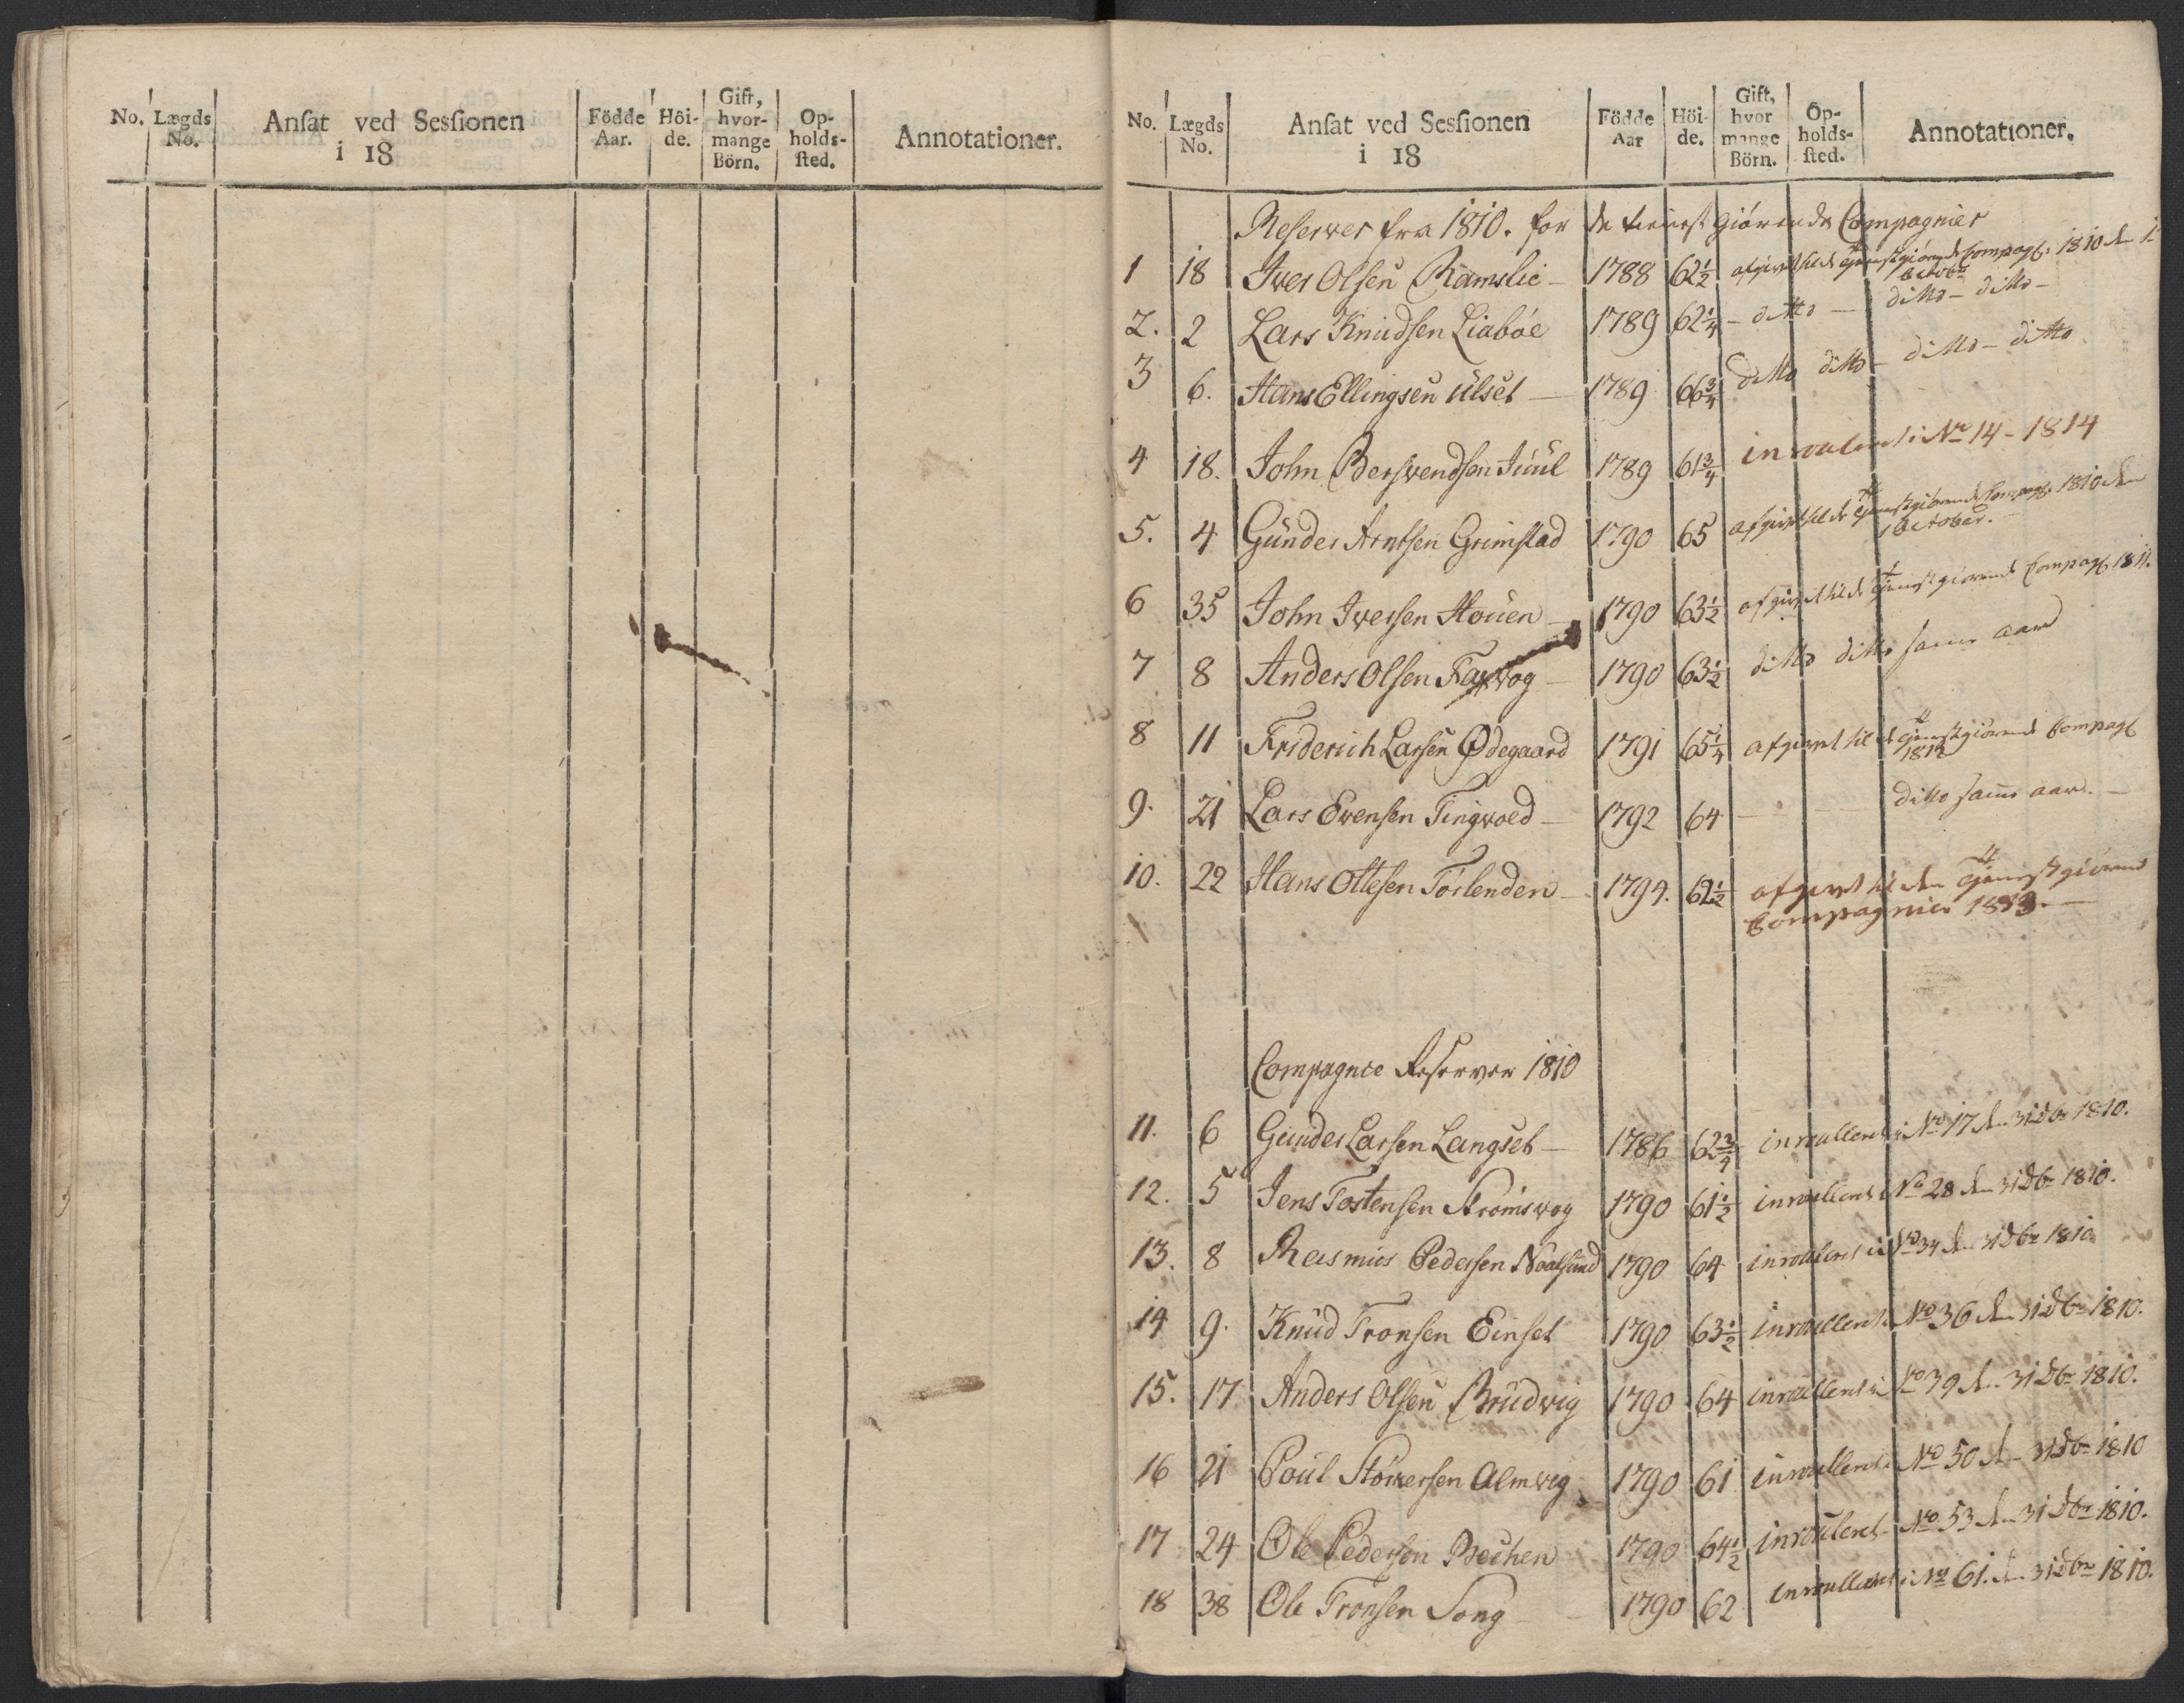 No. Lægds No. Ansat ved Sessionen i 18 Födde Aar. Höi-de. Gift, hvor-mange Börn. Op-holds-sted. Annotationer.
No. Lægds No. Ansat ved Sessionen i 18 Födde Aar Höi-de. Gift, hvor mange Börn. Op-holds-sted. Annotationer.
Reserver fra 1810. for de tienestgiörende Compagnier
1 18 Iver Olsen Ramslie - 1788 62½ afgivet til de 4 tjenestgiörende Compagn. 1810 den 1 Octobr
2. 2 Lars Knudsen Liaböe 1789 62¼ - ditto - ditto - ditto -
3 6. Hans Ellingsen Ulset - 1789 66¾ ditto ditto - ditto - ditto
4 18. John Berswendsen Juul 1789 61¾ inroulert i No 14 - 1814
5. 4 Gunder Arntsen Grimstad 1790 65 afgivet til de 4 tjenestgiörende Compagn. 1810 den 1 October.
6 35 John Iversen Houen - 1790 63½ afgivet til de 4 tjenestgiörende Compagn. 1811.
7 8 Anders Olsen - 1790 63½ ditto ditto samme aar
8 11 Friderich Larsen Ødegaard 1791 65¼ afgivet til de 4 tjenestgiörende Compagn 1812
9. 21 Lars Evensen Tingvold - 1792 64 - - ditto samme aar. -
10. 22 Hans Ottesen Törlenden - 1794. 62½ afgivet til den 4 tjenestgiörende Compagnier 1813. -
Compagnie Reserver 1810
11. 6 Gunder Larsen Langset - 1786 62¾ inroullert i No 17 den 31 Dbr 1810.
12. 5 Jens Tostensen Strömswog 1790 61½ inroullert i No 28 den 31 Dbr 1810.
13. 8 Rasmus Pedersen 1790 64 inroullert i No 34 den 31 Dbr 1810
14 9. Knud Tronsen Einset 1790 63½ inroullert i No 36 den 31 Dbr 1810.
15. 17 Anders Olsen Brudwig 1790 64 inroullert i No 39 den 31 Dbr 1810.
16 21 Poul Störkersen Almwig 1790 61 inroullert i No 50 den 31 Dbr 1810
17 24 Ole Pedersen 1790 64½ inroulert No 53 den 31 Dbr 1810.
18 38 Ole Tronsen Song - 1790 62 inroullert i No 61. den 31 Dbr 1810.